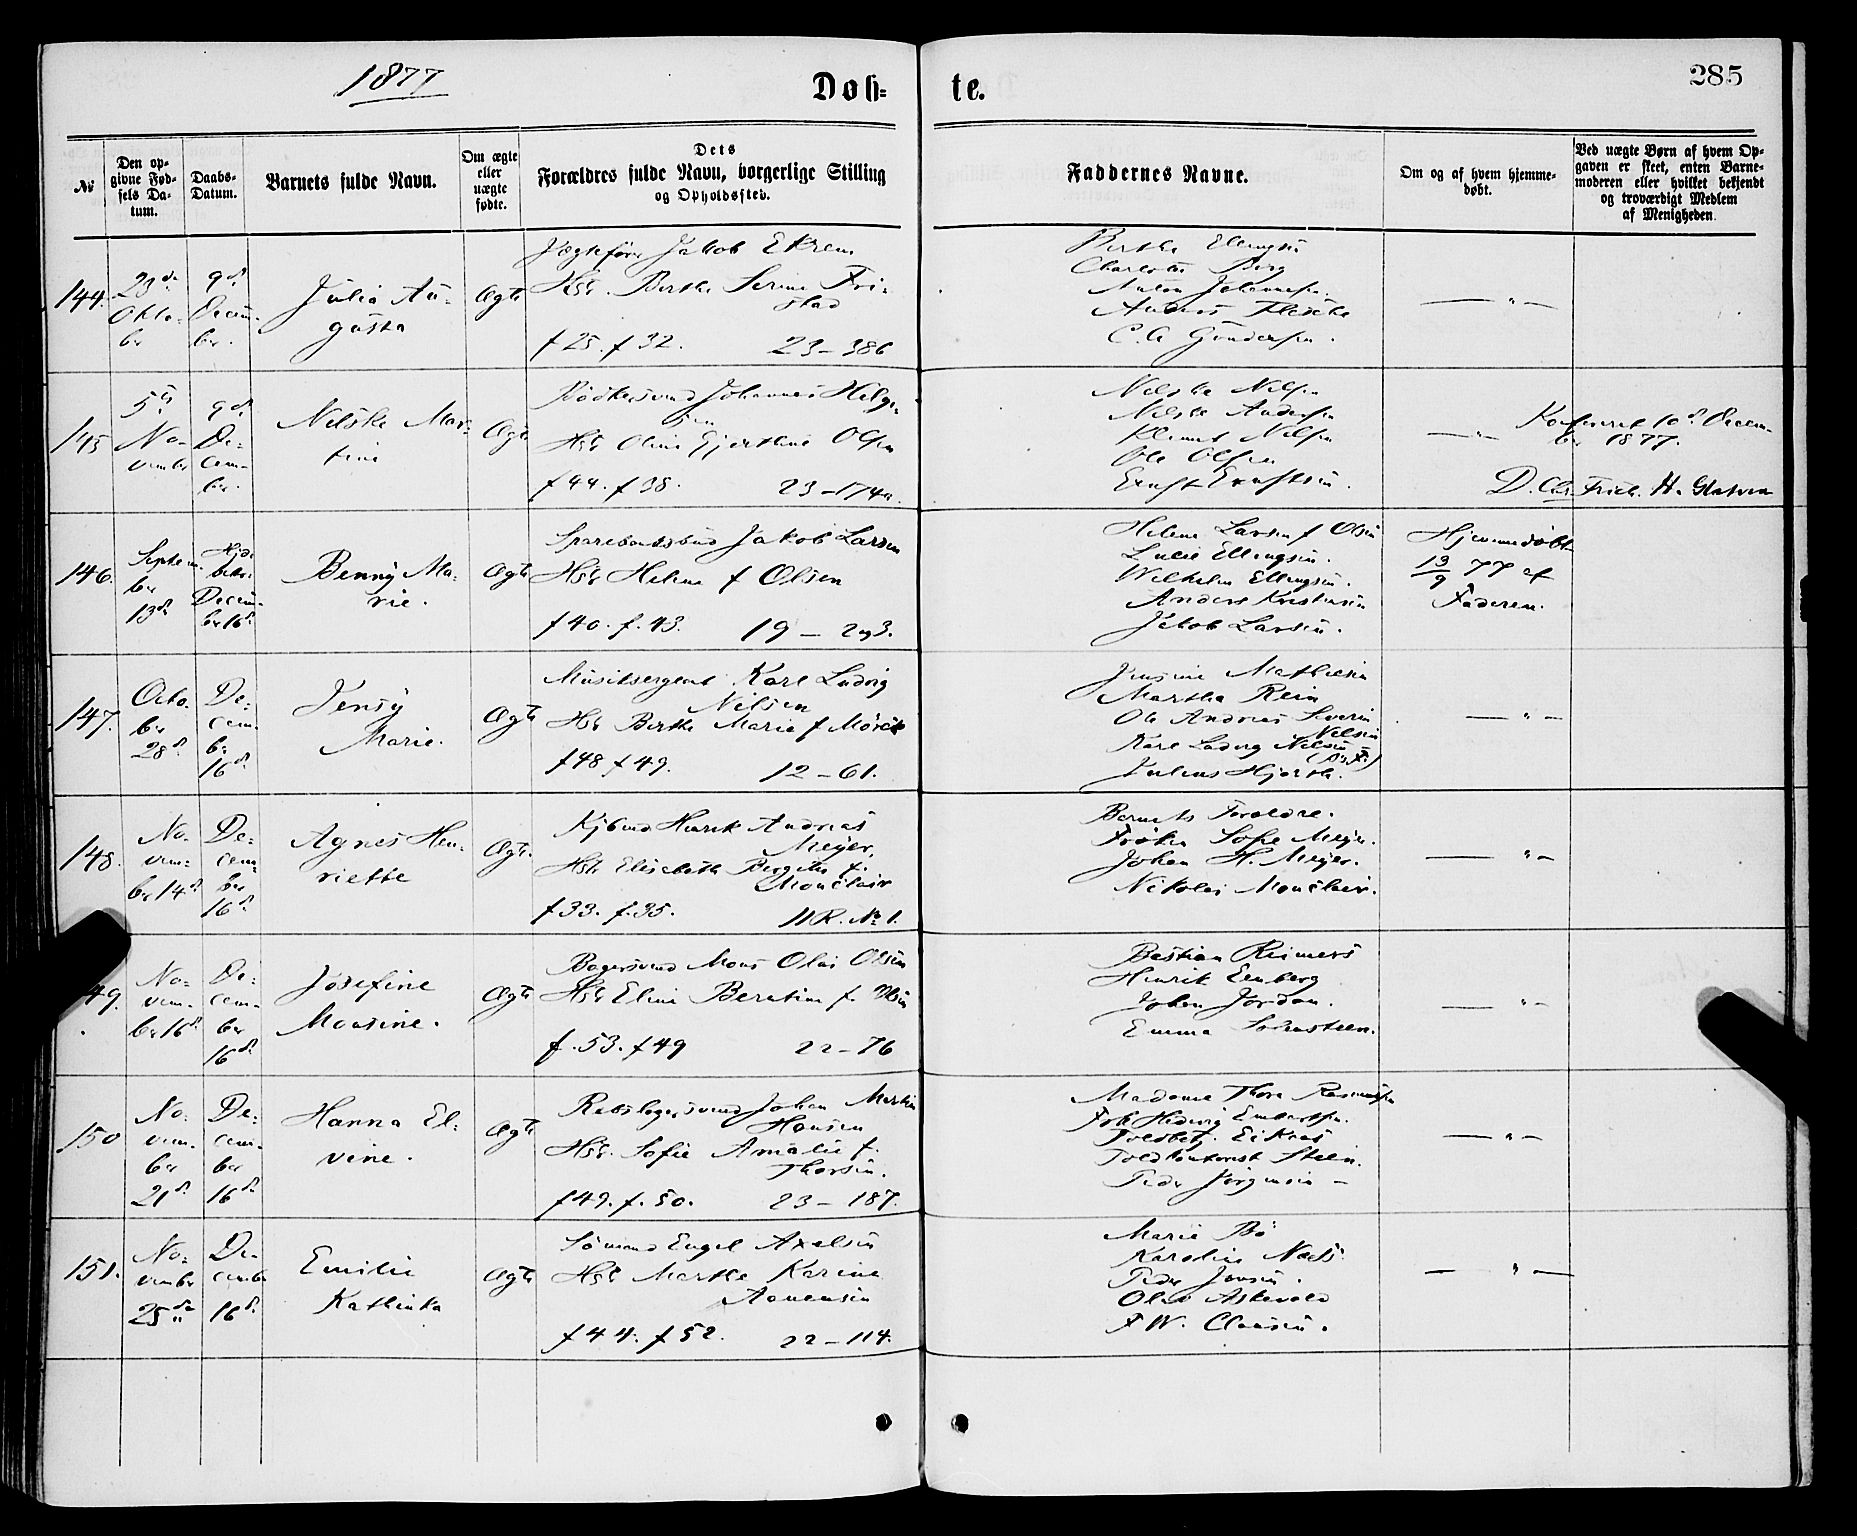 1877
Døb-
te.
285
№
Den op-
givne Fød-
sels Da-
tum.
Daabs-
Datum.
Barnets fulde Navn.
Om ægte
eller
uægte
fødte.
Dets
Forældres fulde Navn, borgerlige Stilling
og Opholdssted.
Faddernes Navne.
Om og af hvem hjemme-
døbt.
Ved uægte Børn af hvem Op-
gaven er skeet, enten Barne-
moderen eller hvilket bekjendt
og troværdigt Medlem
af Menigheden.
144.
23de
Okto-
br
9d
Decem-
br.
Julia Au-
gusta
Ægte
Jakob Ekrem
Hst. Berthe Serine Fri-
stad
f 25. f 32. 23-386
Berthe Ellingsen
Charlotte Berg
Anton Johannesen.
Anders
C. A. Gundersen.
— " —
145
5te
No-
vembr
9d
De-
cem-
ber.
Nilske Mar-
tine
Ægte
Bødkersvend Johannes Helge-
sen
Hst Oline Gjertine Olsen
f 44. f 38. 23-174a.
Nilske Nilsen
Nilske Andersen
Klemet Nilsen
Ole Olsen
Ernst Ernstsen.
— " —
10d Decem-
ber 1877.
D. Chr. Fried. H.
146.
Septem-
ber
13de
Decem-
br 16d.
Benny Ma-
rie.
Ægte
Sparebanksbud Jakob Larsen
Hst Helene f Olsen
f 40. f. 43. 19 - 293.
Helene Larsen f Olsen
Lucie Ellingsen.
Wilhelm Ellingsen.
Anders Kristensen
Jakob Larsen.
Hjemmedøbt
13/9 77 af
Faderen.
147.
Octo-
br
28d.
De-
cem-
br
16d.
Jensy
Marie.
Ægte
Musiksergeant Karl Ludvig
Nilsen
Hst Berthe Marie f Mørck
f 48 f 49. 12-61.
Jensine Mathiesen
Martha Rein
Ole Andreas Severin
Nilsen
Karl Ludvig Nilsen
Julius Hjorth.
— " —
148.
No-
vem-
br 14d
De-
cem-
ber
16d.
Agnes Hen-
riette
Ægte.
Kjbmd Henrik Andreas
Meyer,
Hst Elisabeth Bergitte f.
Monclair
f 33. f. 35. 11R. No 1.
Barnets Forældre.
Frøken Sofie Meyer.
Johan H. Meyer.
Nikolai Monclair.
— " —
49.
No-
vem-
br 16d.
De-
cem-
ber
16d.
Josefine
Monsine.
Ægte
Bagersvend Mons Olai Olsen
Hst Eline Berntine f. Olsen
f. 53. f 49 22-76
Bastian Reimers
Henrik Eenberg
Johan Jordan.
Emma
— " —
150
No-
vem-
ber
21d.
De-
cem-
ber
16d.
Hanna El-
vine.
Ægte
Rebslagersvend Johan Martin
Hansen
Hst. Sofie Amalie f.
Thorsen.
f 49. f. 50. 23-187.
Madame Thora Rasmussen
Frk Hedevig Embertsen.
Toldbet. Eikaas
Toldkontorist Steen.
Peder Jørgensen -
— " —
151.
No-
vembr
25de
De-
cembr
16d.
Emilie
Kathinka
Ægte
Sømand Engel Axelsen
Hst Marthe Karine
Aanensen
f 44. f 52. 22-114.
Marie Bø
Karoline Næss
Peder Jonsen.
Olav Askevold
F W. Clausen.
— " —